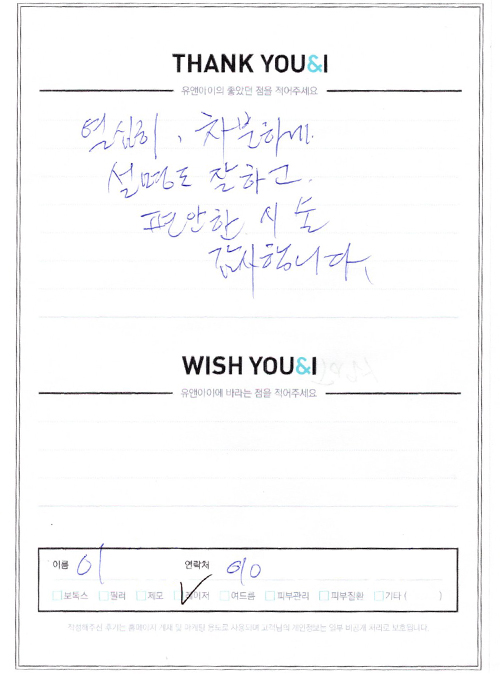 THANK YOU&I
유앤아이의 좋았던 점을 적어주세요
열심히, 차분하게.
설명도 잘하고.
편안한 시술
감사합니다.
WISH YOU&I
유앤아이에 바라는 점을 적어주세요
이름 이 연락처 010
보톡스 필러 제모 레이저 여드름 피부관리 피부질환 기타 ( )
작성해주신 후기는 홈페이지 게재 및 마케팅 용도로 사용되며 고객님의 개인정보는 일부 비공개 처리로 보호됩니다.